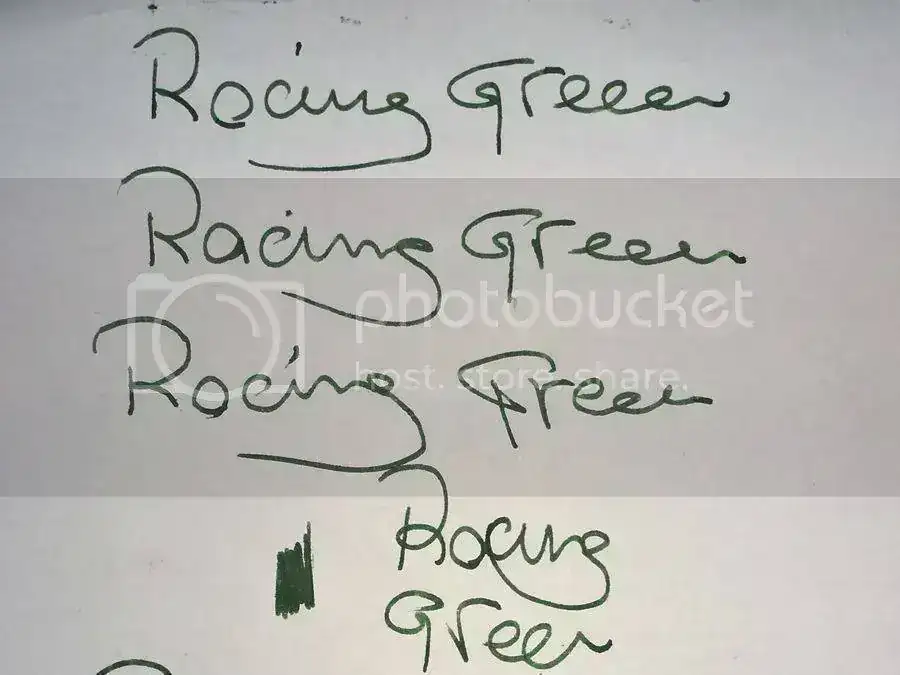 Racing Green
Racing Green
photobucket
host. store. share.
Racing Green
Racing
Green